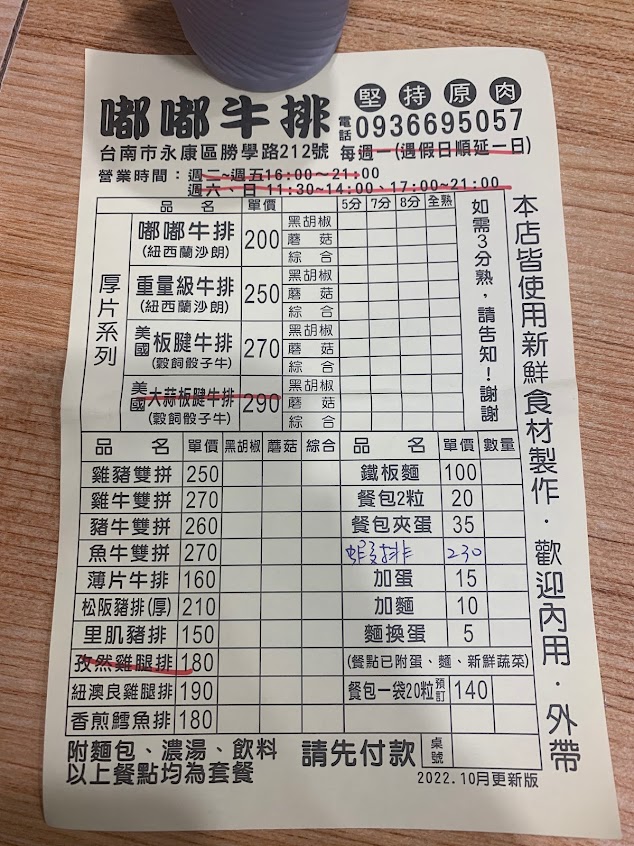 嘟嘟牛排 堅持原肉
電話0936695057
台南市永康區勝學路212號 每週一(遇假日順延一日)
營業時間：週二~週五16:00~21:00
週六、日 11:30~14:00、17:00~21:00
品名 單價 5分 7分 8分 全熟
厚片系列
嘟嘟牛排 (紐西蘭沙朗) 200 黑胡椒 蘑菇 綜合
重量級牛排 (紐西蘭沙朗) 250 黑胡椒 蘑菇 綜合
美國板腱牛排 (穀飼骰子牛) 270 黑胡椒 蘑菇 綜合
美國大蒜板腱牛排 (穀飼骰子牛) 290 黑胡椒 蘑菇 綜合
如需3分熟，請告知！謝謝
本店皆使用新鮮食材製作．歡迎內用．外帶
品名 單價 黑胡椒 蘑菇 綜合 品名 單價 數量
雞豬雙拼 250 鐵板麵 100
雞牛雙拼 270 餐包2粒 20
豬牛雙拼 260 餐包夾蛋 35
魚牛雙拼 270 蝦排 230
薄片牛排 160 加蛋 15
松阪豬排(厚) 210 加麵 10
里肌豬排 150 麵換蛋 5
孜然雞腿排 180 (餐點已附蛋、麵、新鮮蔬菜)
紐澳良雞腿排 190 餐包一袋20粒預訂 140
香煎鱈魚排 180
附麵包、濃湯、飲料
以上餐點均為套餐
請先付款 桌號
2022.10月更新版